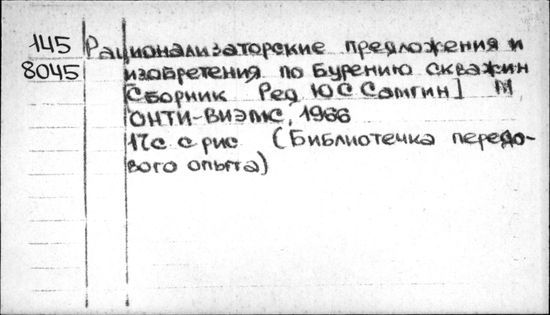 145 Рационализаторские предложения и
8045 изобретения по бурению скважин
[Сборник Ред Ю С Самгин] М
ОНТИ-ВИЭМС, 1966
17с с рис (Библиотечка передо-
вого опыта)